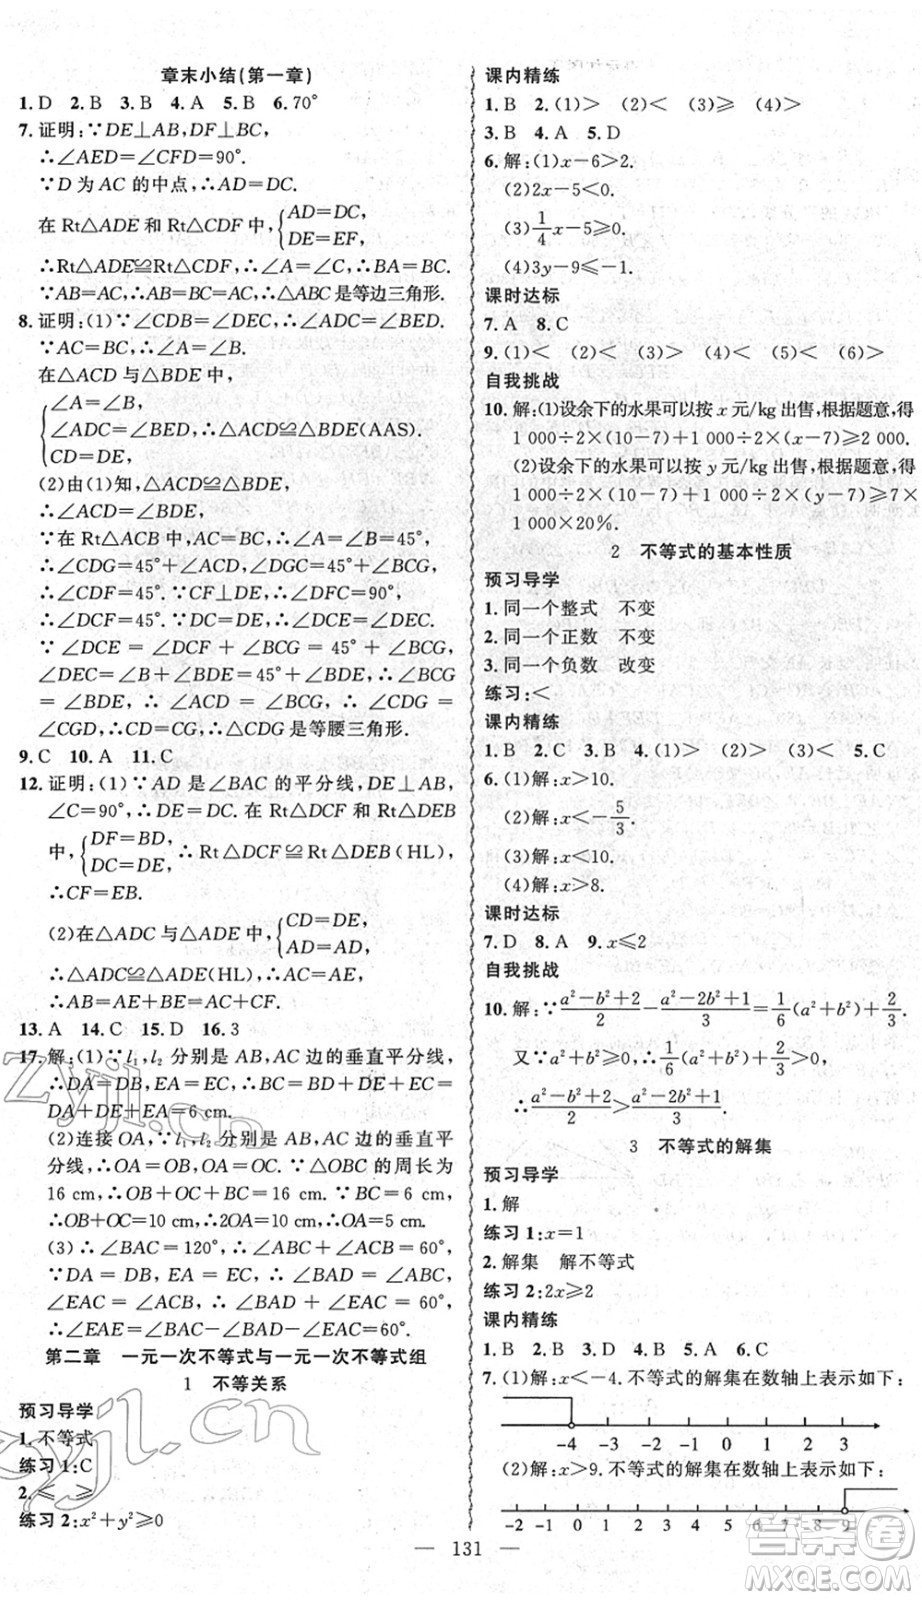 章末小结(第一章)
1. D 2. B 3. B 4. A 5. B 6. 70°
7. 证明:∵DE⊥AB,DF⊥BC,
∴∠AED=∠CFD=90°.
∵D 为 AC 的中点,∴AD=DC.
在 Rt△ADE 和 Rt△CDF 中,{AD=DC,
DE=EF,
∴Rt△ADE≌Rt△CDF,∴∠A=∠C,∴BA=BC.
∵AB=AC,∴AB=BC=AC,∴△ABC 是等边三角形.
8. 证明:(1)∵∠CDB=∠DEC,∴∠ADC=∠BED.
∵AC=BC,∴∠A=∠B.
在△ACD 与△BDE 中,
{∠A=∠B,
∠ADC=∠BED,∴△ACD≌△BDE(AAS).
CD=DE,
(2)由(1)知,△ACD≌△BDE,
∴∠ACD=∠BDE.
∵在 Rt△ACB 中,AC=BC,∴∠A=∠B=45°,
∴∠CDG=45°+∠ACD,∠DGC=45°+∠BCG,
∴∠CDF=45°.∵CF⊥DE,∴∠DFC=90°,
∴∠DCF=45°.∵DC=DE,∴∠DCE=∠DEC.
∵∠DCE = ∠DCF + ∠BCG = 45° + ∠BCG,
∠DEC = ∠B + ∠BDE = 45° + ∠BDE, ∴ ∠BCG
= ∠BDE, ∴ ∠ACD = ∠BCG, ∴ ∠CDG =
∠CGD,∴CD=CG,∴△CDG 是等腰三角形.
9. C 10. A 11. C
12. 证明:(1)∵AD 是∠BAC 的平分线,DE⊥AB,
∠C=90°,∴DE=DC.在 Rt△DCF 和 Rt△DEB
中,{DF=BD,
DC=DE,∴Rt△DCF≌Rt△DEB(HL),
∴CF=EB.
(2)在△ADC 与△ADE 中,{CD=DE,
AD=AD,
∴△ADC≌△ADE(HL),∴AC=AE,
∴AB=AE+BE=AC+EB=AF+2EB.
13. A 14. C 15. D 16. 3
17. 解:(1)∵l₁,l₂ 分别是 AB,AC 边的垂直平分线,
∴DA=DB,EA=EC,∴BC=BD+DE+EC=
DA+DE+EA=6 cm.
(2)连接 OA,∵l₁,l₂ 分别是 AB,AC 边的垂直平
分线,∴OA=OB=OA=OC.∵△OBC 的周长为
16 cm,∴OB+OC+BC=16 cm.∵BC=6 cm,
∴OB+OC=10 cm,∴2OA=10 cm,∴OA=5 cm.
(3)∴∠BAC=120°,∴∠ABC+∠ACB=60°,
∵DA = DB, EA = EC, ∴ ∠BAD = ∠ABC,
∠EAC = ∠ACB, ∴ ∠BAD + ∠EAC = 60°,
∴∠EAE=∠BAC-∠BAD-∠EAC=60°.
第二章 一元一次不等式与一元一次不等式组
1 不等关系
预习导学
1. 不等式
练习 1:C
2. ≤ ≥
练习 2:x²+y²≥0
课内精练
1. B 2. (1)> (2)< (3)≥ (4)>
3. B 4. A 5. D
6. 解:(1)x-6>2.
(2)2x-5<0.
(3)1/4x-5≥0.
(4)3y-9≤-1.
课时达标
7. A 8. C
9. (1)< (2)< (3)> (4)< (5)< (6)>
自我挑战
10. 解:(1)设余下的水果可以按 x 元/kg 出售,根据题意,得
1 000÷2×(10-7)+1 000÷2×(x-7)≥2 000.
(2)设余下的水果可以按 y 元/kg 出售,根据题意,得
1 000÷2×(10-7)+1 000÷2×(y-7)≥7×
1 000×20%.
2 不等式的基本性质
预习导学
1. 同一个整式 不变
2. 同一个正数 不变
3. 同一个负数 改变
练习:<
课内精练
1. B 2. C 3. B 4. (1)> (2)> (3)< 5. C
6. (1)解:x>10.
(2)解:x<-5/3.
(3)解:x<10.
(4)解:x>8.
课时达标
7. D 8. A 9. x≤2
自我挑战
10. 解:∵(a²-b²+2)/2-(a²-2b²+1)/3=1/6(a²+b²)+2/3.
又∵a²+b²≥0,∴1/6(a²+b²)+2/3>0,
∴(a²-b²+2)/2>(a²-2b²+1)/3.
3 不等式的解集
预习导学
1. 解
练习 1:x=1
2. 解集 解不等式
练习 2:2x≥2
课内精练
1. B 2. B 3. B 4. A 5. A 6. C
7. (1)解:x<-4.不等式的解集在数轴上表示如下:
-4 -3 -2 -1 0 1 2 3
(2)解:x>9.不等式的解集在数轴上表示如下:
-2 -1 0 1 2 3 4 5 6 7 8 9
— 131 —
zyjl.cn
zyjl.cn
答案卷
MXQE.COM